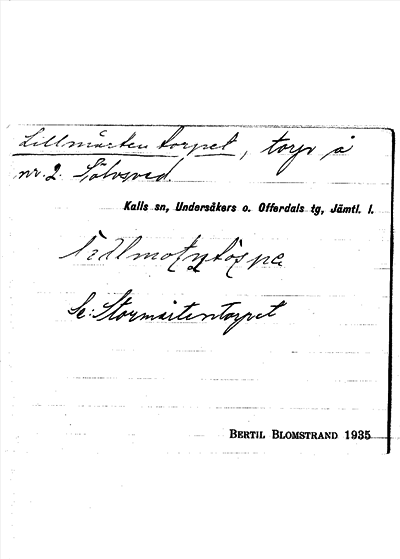 Lillmårten torpet, torp å
nr. 2. Sölvsved.
Kalls sn, Undersåkers o. Offerdals tg, Jämtl. l.
Se: Stormårtentorpet
BERTIL BLOMSTRAND 1935